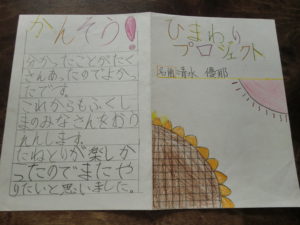 かんそう!
分かったことがたく
さんあったのでよかっ
たです。
これからもふくし
まのみなさんをおう
えんします。
たねとりが楽しか
ったのでまたや
りたいと思いました。
ひまわり
プロジェクト
名前 清水 優那